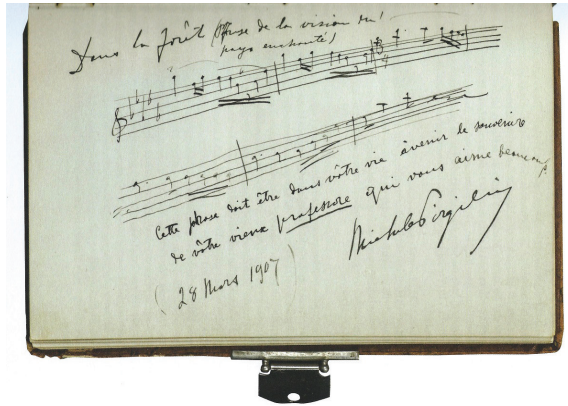 Dans la forêt (phrase de la vision du
pays enchanté)
Cette phrase doit être dans vôtre vie àvenir le souvenir
de vôtre vieux professore qui vous aime beaucoup
(28 Mars 1907)